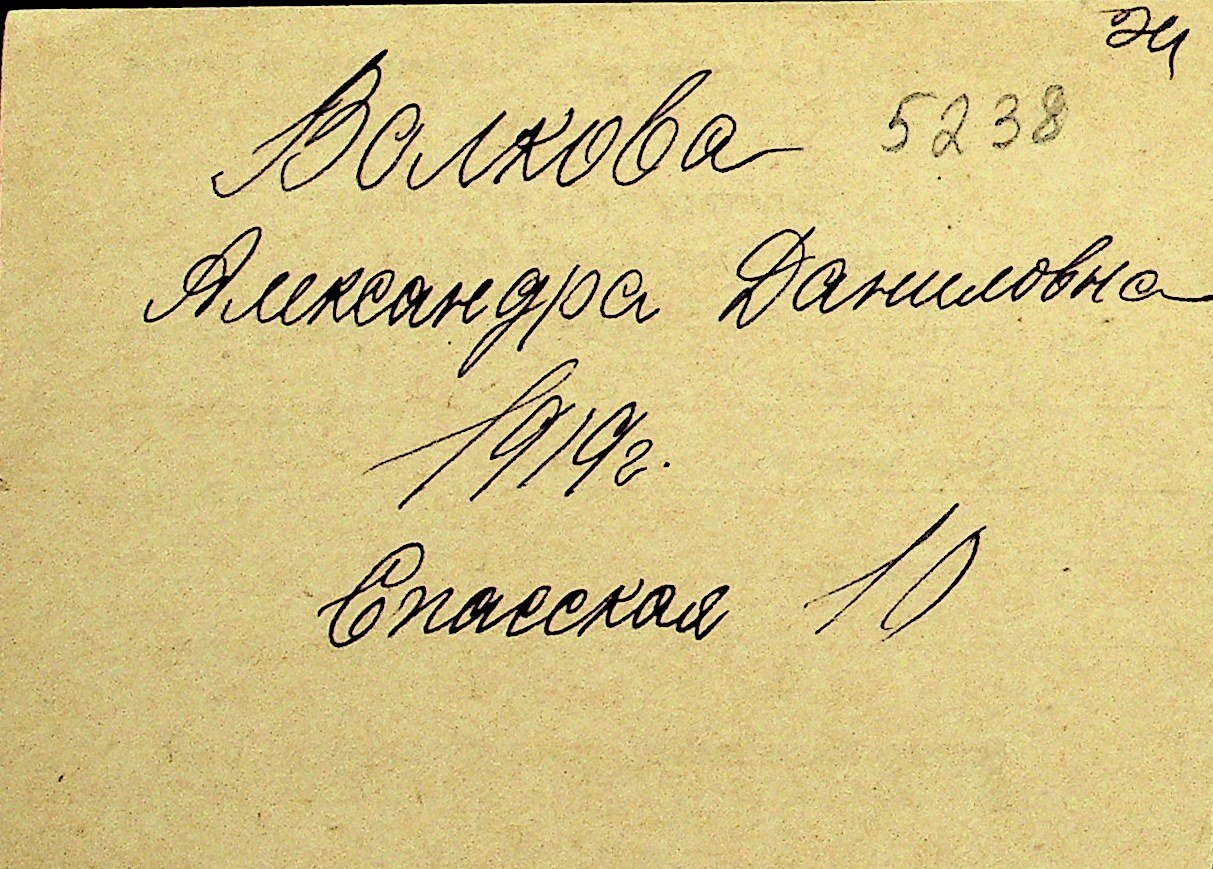 Волкова 5238
Александра Даниловна
1919г.
Спасская 10